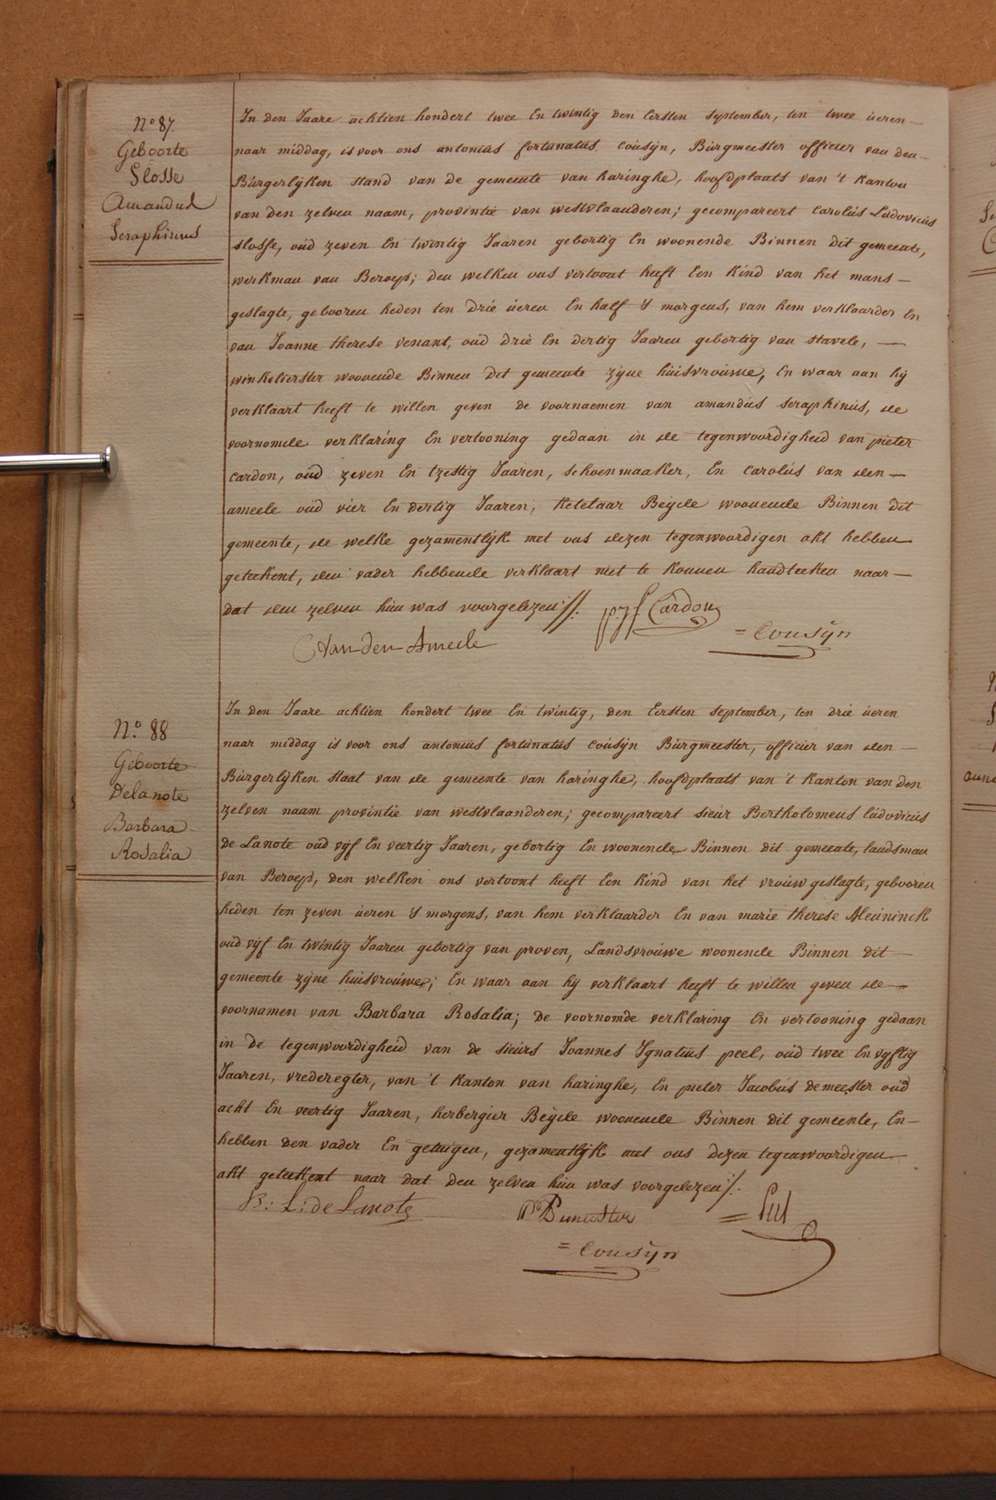 No 87
Geboorte
Slosse
Amandus
Seraphinus
In den Jaare achtien hondert twee En twintig den Eersten september, ten twee üeren
naar middag, is voor ons antonius fortunatüs coúsyn, Búrgmeester officier van den
Búrgerlyken stand van de gemeente van haringhe, hoofdplaats van 't kanton
van den zelven naam, provintie van westvlaanderen; gecompareert carolús Ludovicus
slosse, oúd zeven En twintig Jaaren gebortig En woonende Binnen dit gemeente,
werkman van Beroep; den welken ons vertoont heeft Een kind van het mans
geslagte, gebooren heden ten drie üeren En half 's morgens, van hem verklaarder En
van Joanne therese venant, oúd drie En dertig Jaaren gebortig van stavele,
winkelierster woonende Binnen dit gemeente zyne húisvroúwe, En waar aan hy
verklaart heeft te willen geven de voornaemen van amandús seraphinús, de
voornomde verklaring En vertooning gedaan in de tegenwoordigheid van pieter
cardon, oúd zeven En tzestig Jaaren, schoenmaaker, En carolús van den
ameele oúd vier En dertig Jaaren, ketelaar Beyde woonende Binnen dit
gemeente, de welke gezamentlyk met ons dezen tegenwoordigen akt hebben
geteekent, den vader hebbende verklaart niet te konnen handteeken naar
dat den zelven hún was voorgelezen //.
p j f Cardon
= Cousÿn
C Van den Ameele
No. 88
Geboorte
Delanote
Barbara
Rosalia
In den Jaare achtien hondert twee En twintig, den Eersten september, ten drie úeren
naar middag is voor ons antonius fortunatús coúsyn Búrgmeester, officier van den
Búrgerlyken staat van de gemeente van haringhe, hoofdplaats van 't kanton van den
zelven naam provintie van westvlaanderen; gecompareert sieúr Bertholomeus lúdovicús
de Lanote oúd vyf En veertig Jaaren, gebortig En woonende Binnen dit gemeente, landsman
van Beroep, den welken ons vertoont heeft Een kind van het vroúw geslagte, gebooren
heden ten zeven úeren 's morgens, van hem verklaarder En van marie therese
oúd vyf En twintig Jaaren gebortig van proven, Landsvroúwe woonende Binnen dit
gemeente zyne húisvroúwe; En waar aan hy verklaart heeft te willen geven de
voornamen van Barbara Rosalia; de voornomde verklaring En vertooning gedaan
in de tegenwoordigheid van de sieúrs Joannes Ignatiús peel, oúd twee En vyftig
Jaaren, vrederegter, van 't kanton van haringhe, En pieter Jacobus demeester oúd
acht En veertig Jaaren, herbergier Beyde woonende Binnen dit gemeente, En
hebben den vader En getuigen, gezamentlyk met ons dezen tegenwoordigen
akt geteekent naar dat den zelven hún was voorgelezen //.
B: L: de Lanote
= Peel
= Cousÿn